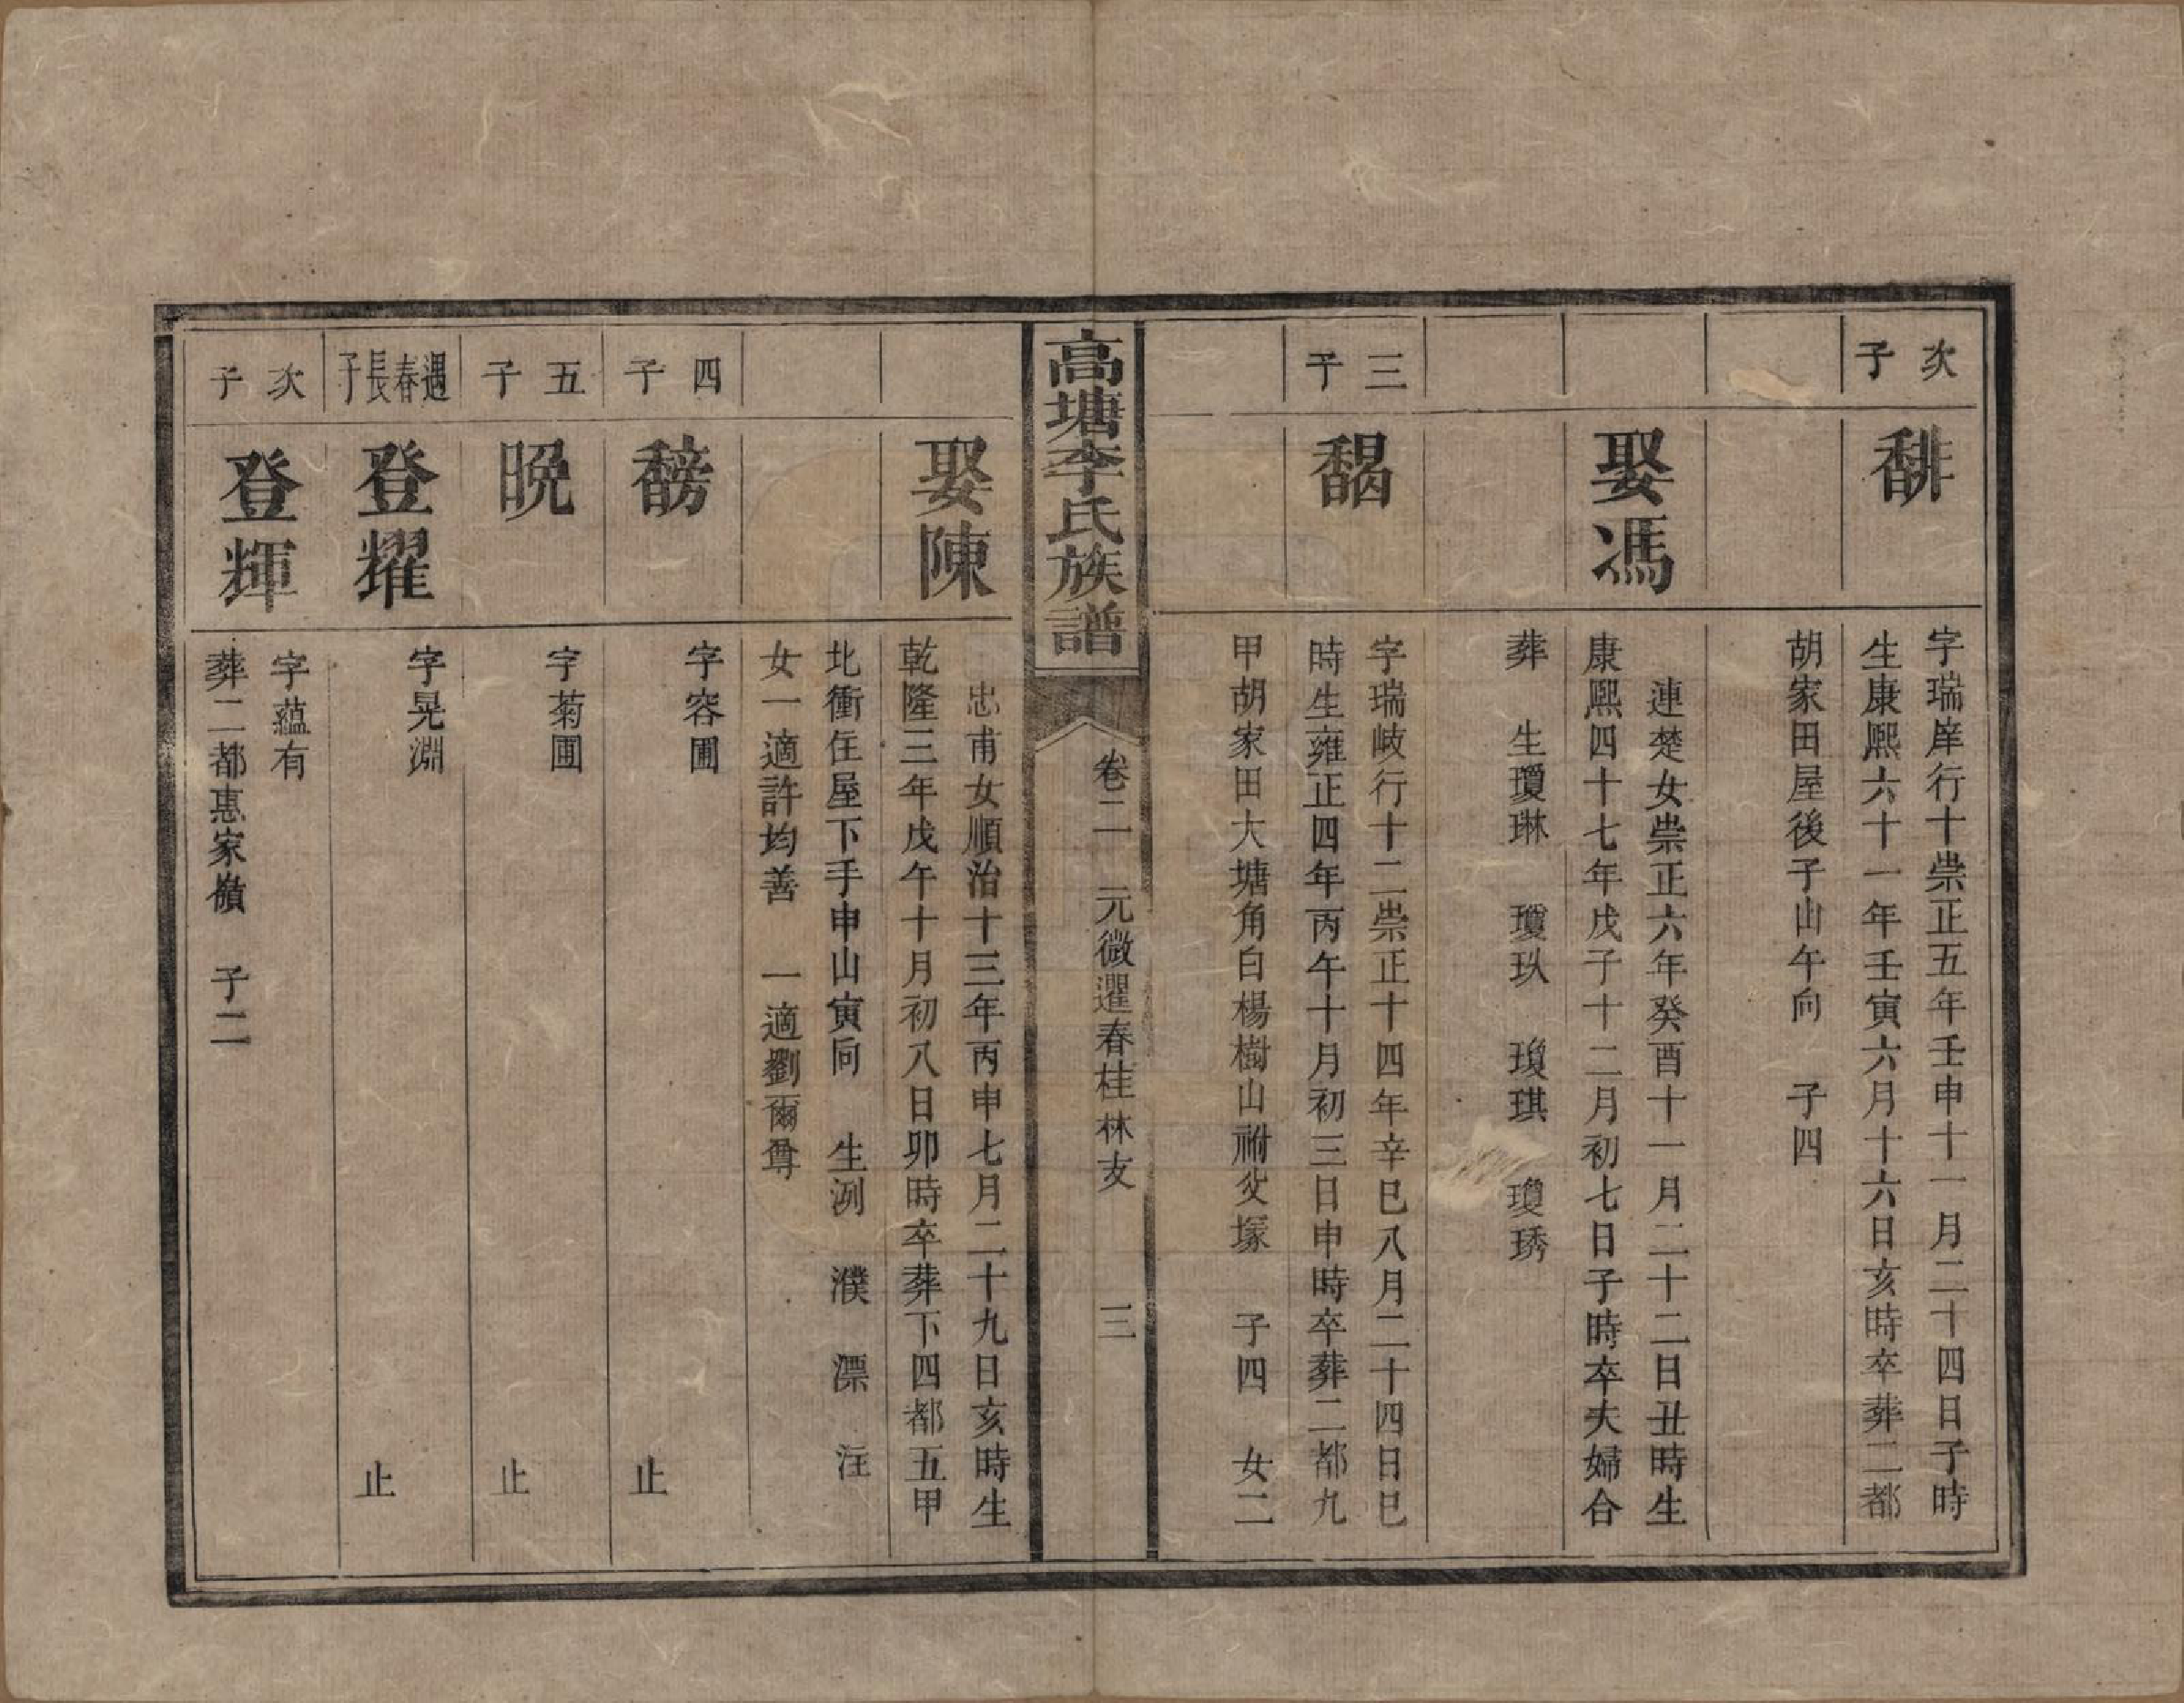 次子
馡
字瑞𡶜行十崇正五年壬申十一月二十四日子時
生康熙六十一年壬寅六月十六日亥時卒葬二都
胡家田屋後子山午向　子四
娶馮
連楚女崇正六年癸酉十一月二十二日丑時生
康熙四十七年戊子十二月初七日子時卒夫婦合
葬　生瓊琳　瓊玖　瓊琪　瓊琇
三子
馤
字瑞岐行十二崇正十四年辛巳八月二十四日巳
時生雍正四年丙午十月初三日申時卒葬二都九
甲胡家田大塘角白楊樹山祔父塚　子四　女二
高塘李氏族譜
卷二　元微暹春桂林支　三
娶陳
忠甫女順治十三年丙申七月二十九日亥時生
乾隆三年戊午十月初八日卯時卒葬下四都五甲
北衝住屋下手申山寅向　生洌　濮　漂　汪
女一適許均善　一適劉爾尊
四子
馪
字容圃
止
五子
晚
字菊圃
止
遇春長子
登耀
字晃淵
止
次子
登輝
字蘊有
葬二都惠家嶺　子二